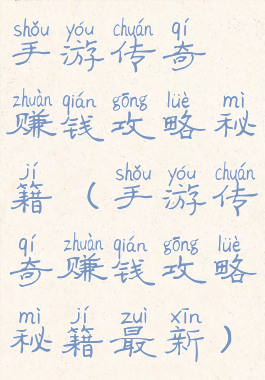 shǒu yóu chuán qí
手游传奇
zhuàn qián gōng lüè mì
赚钱攻略秘
jí shǒu yóu chuán
籍（手游传
qí zhuàn qián gōng lüè
奇赚钱攻略
mì jí zuì xīn
秘籍最新）